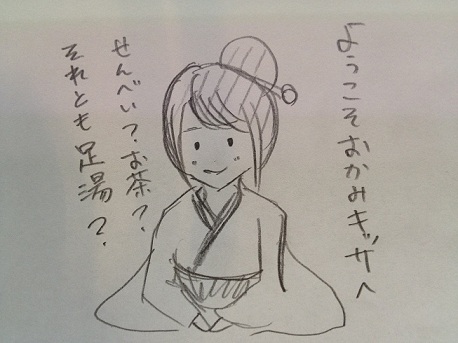 ようこそおかみキッサへ
せんべい?お茶?
それとも足湯?